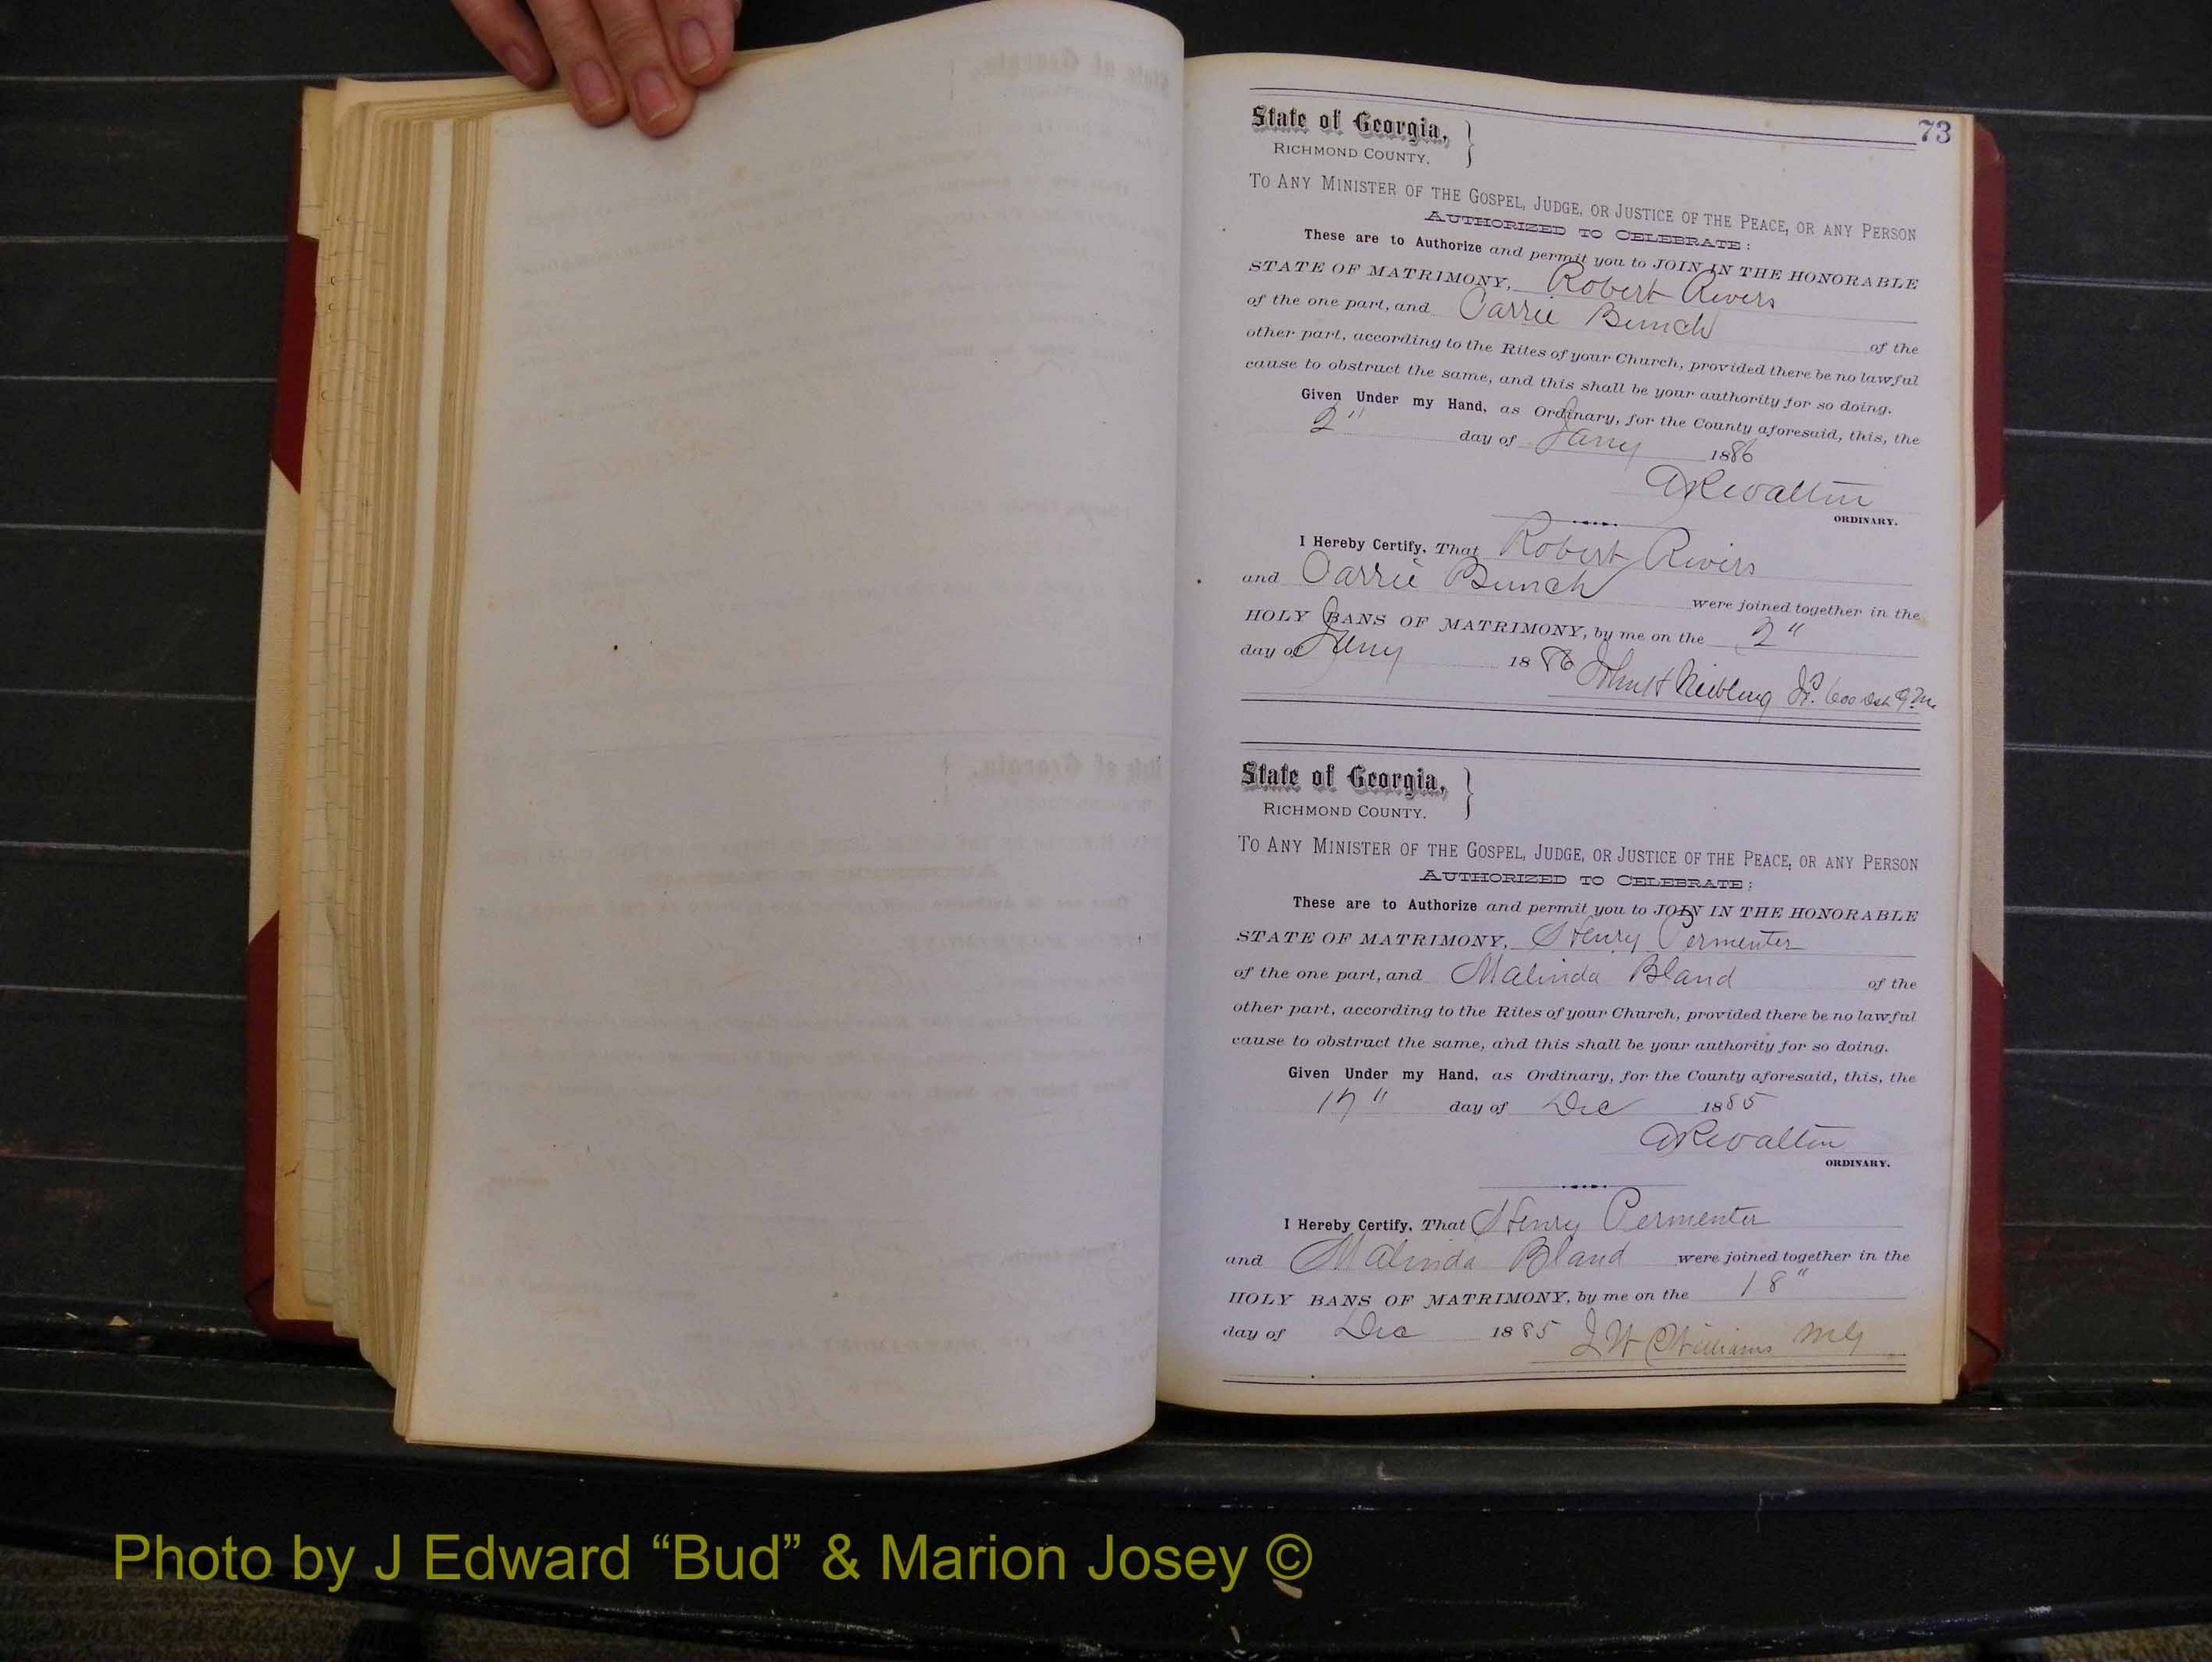 73
State of Georgia,
RICHMOND COUNTY.
TO ANY MINISTER OF THE GOSPEL, JUDGE, OR JUSTICE OF THE PEACE, OR ANY PERSON
AUTHORIZED TO CELEBRATE:
These are to Authorize and permit you to JOIN IN THE HONORABLE
STATE OF MATRIMONY, Robert Rivers
of the one part, and Carrie Bunch of the
other part, according to the Rites of your Church, provided there be no lawful
cause to obstruct the same, and this shall be your authority for so doing.
Given Under my Hand, as Ordinary, for the County aforesaid, this, the
2" day of Jany 1886
A R Walton
ORDINARY.
I Hereby Certify, That Robert Rivers
and Carrie Bunch were joined together in the
HOLY BANS OF MATRIMONY, by me on the 2"
day of Jany 1886 John H Neibling J.P. 600 Dist G.M.
State of Georgia,
RICHMOND COUNTY.
TO ANY MINISTER OF THE GOSPEL, JUDGE, OR JUSTICE OF THE PEACE, OR ANY PERSON
AUTHORIZED TO CELEBRATE:
These are to Authorize and permit you to JOIN IN THE HONORABLE
STATE OF MATRIMONY, Henry Permenter
of the one part, and Malinda Bland of the
other part, according to the Rites of your Church, provided there be no lawful
cause to obstruct the same, and this shall be your authority for so doing.
Given Under my Hand, as Ordinary, for the County aforesaid, this, the
17" day of Dec 1885
A R Walton
ORDINARY.
I Hereby Certify, That Henry Permenter
and Malinda Bland were joined together in the
HOLY BANS OF MATRIMONY, by me on the 18"
day of Dec 1885 J W Williams M G
Photo by J Edward “Bud” & Marion Josey ©